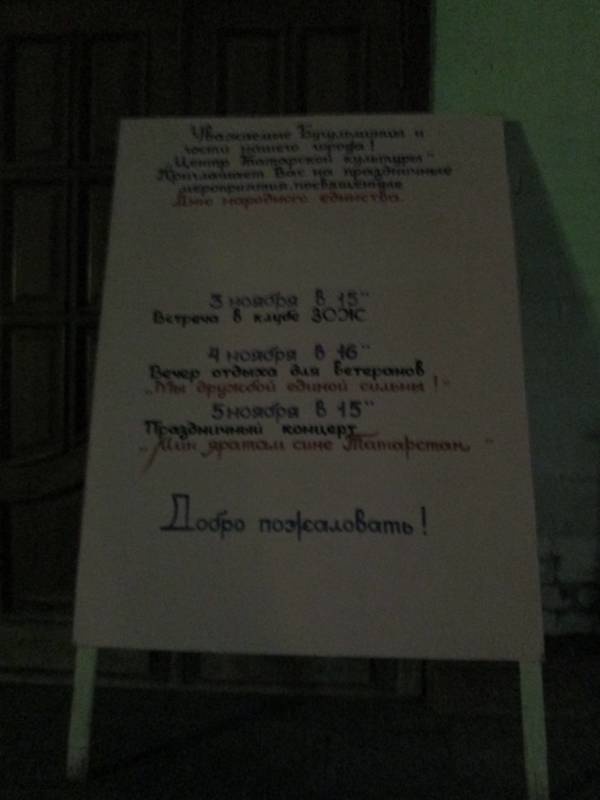 Уважаемые Бугульминцы и
гости нашего города!
"Центр Татарской культуры"
Приглашает Вас на праздничные
мероприятия, посвященную
Дню народного единства.
3 ноября в 15"
Встреча в клубе ЗОЖ
4 ноября в 16"
Вечер отдыха для ветеранов
"Мы дружбой единой сильны!"
5 ноября в 15"
Праздничный концерт
"Мин яратам сине Татарстан"
Добро пожаловать!